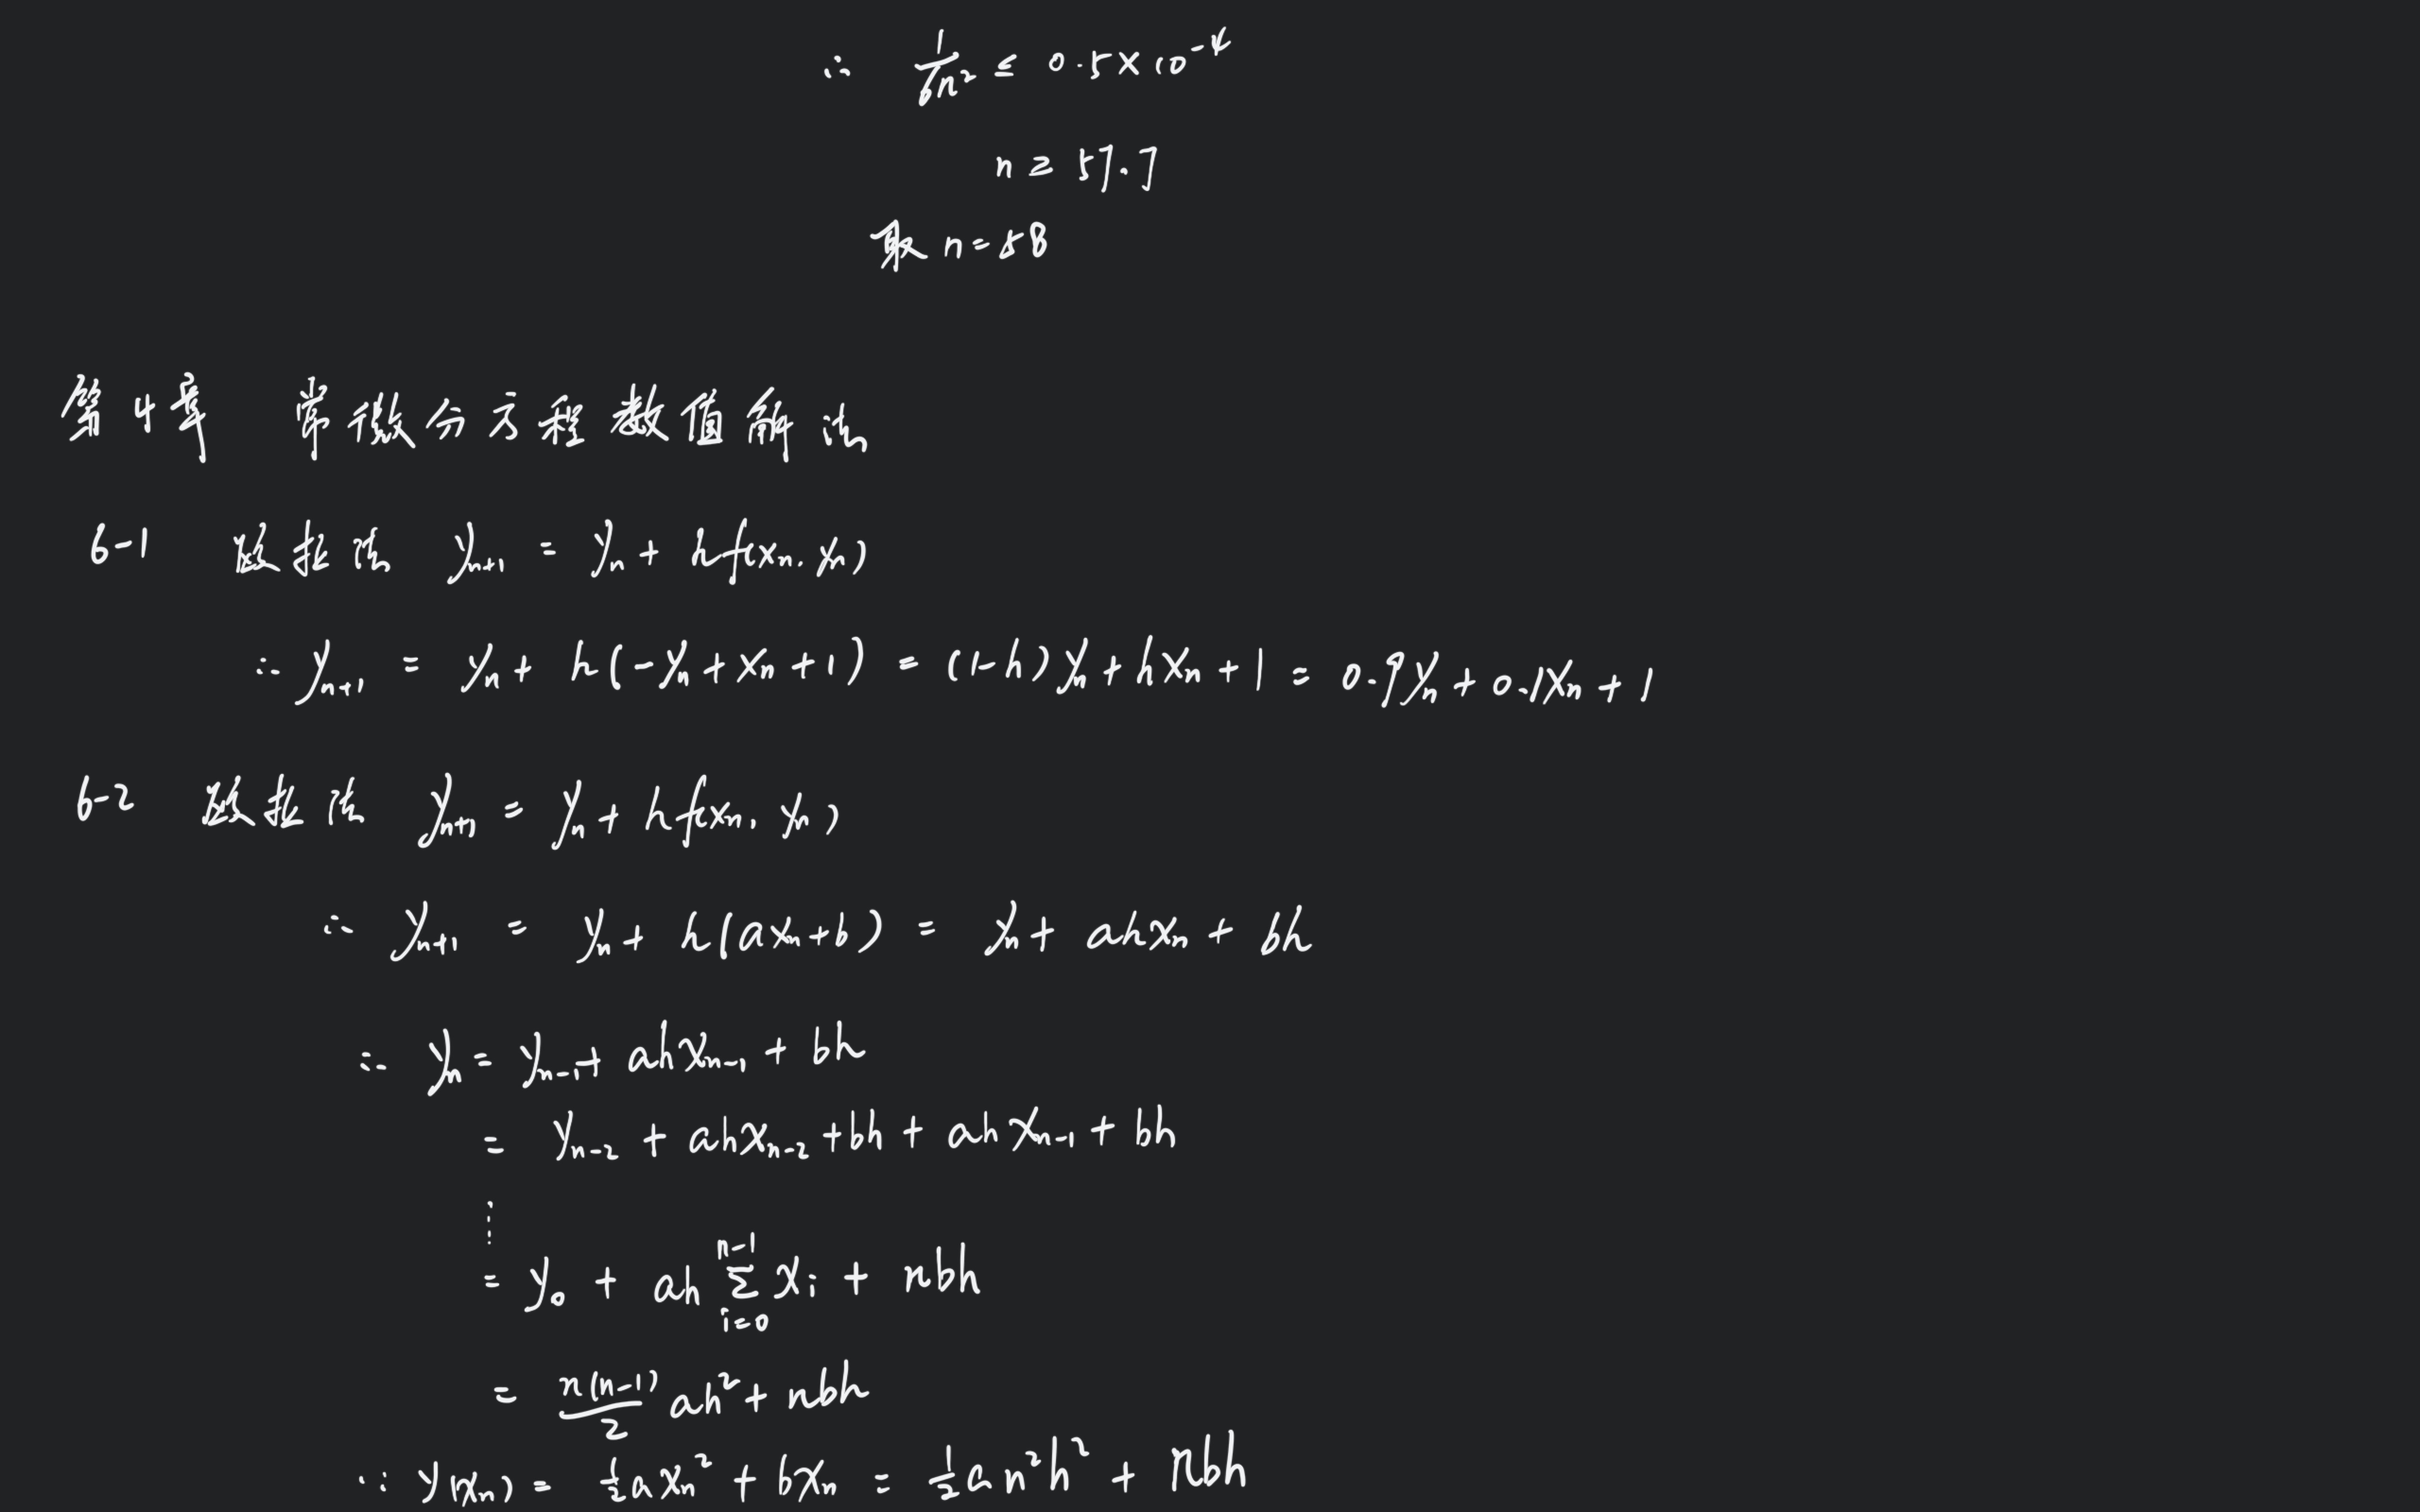 ∴ 1/6n² ≤ 0.5×10⁻⁴
n ≥ 57.7
取 n=58
第4章 常微分方程数值解法
6-1 欧拉法 yₙ₊₁ = yₙ + hf(xₙ, yₙ)
∴ yₙ₊₁ = yₙ + h(-yₙ + xₙ + 1) = (1-h)yₙ + hxₙ + 1 = 0.9yₙ + 0.1xₙ + 1
6-2 欧拉法 yₙ₊₁ = yₙ + hf(xₙ, yₙ)
∴ yₙ₊₁ = yₙ + h(axₙ+b) = yₙ + ahxₙ + bh
∴ yₙ = yₙ₋₁ + ahxₙ₋₁ + bh
= yₙ₋₂ + ahxₙ₋₂ + bh + ahxₙ₋₁ + bh
⋮
= y₀ + ah Σ_{i=0}^{n-1} xᵢ + nbh
= n(n-1)/2 ah² + nbh
∵ y(xₙ) = ½axₙ² + bxₙ = ½an²h² + nbh